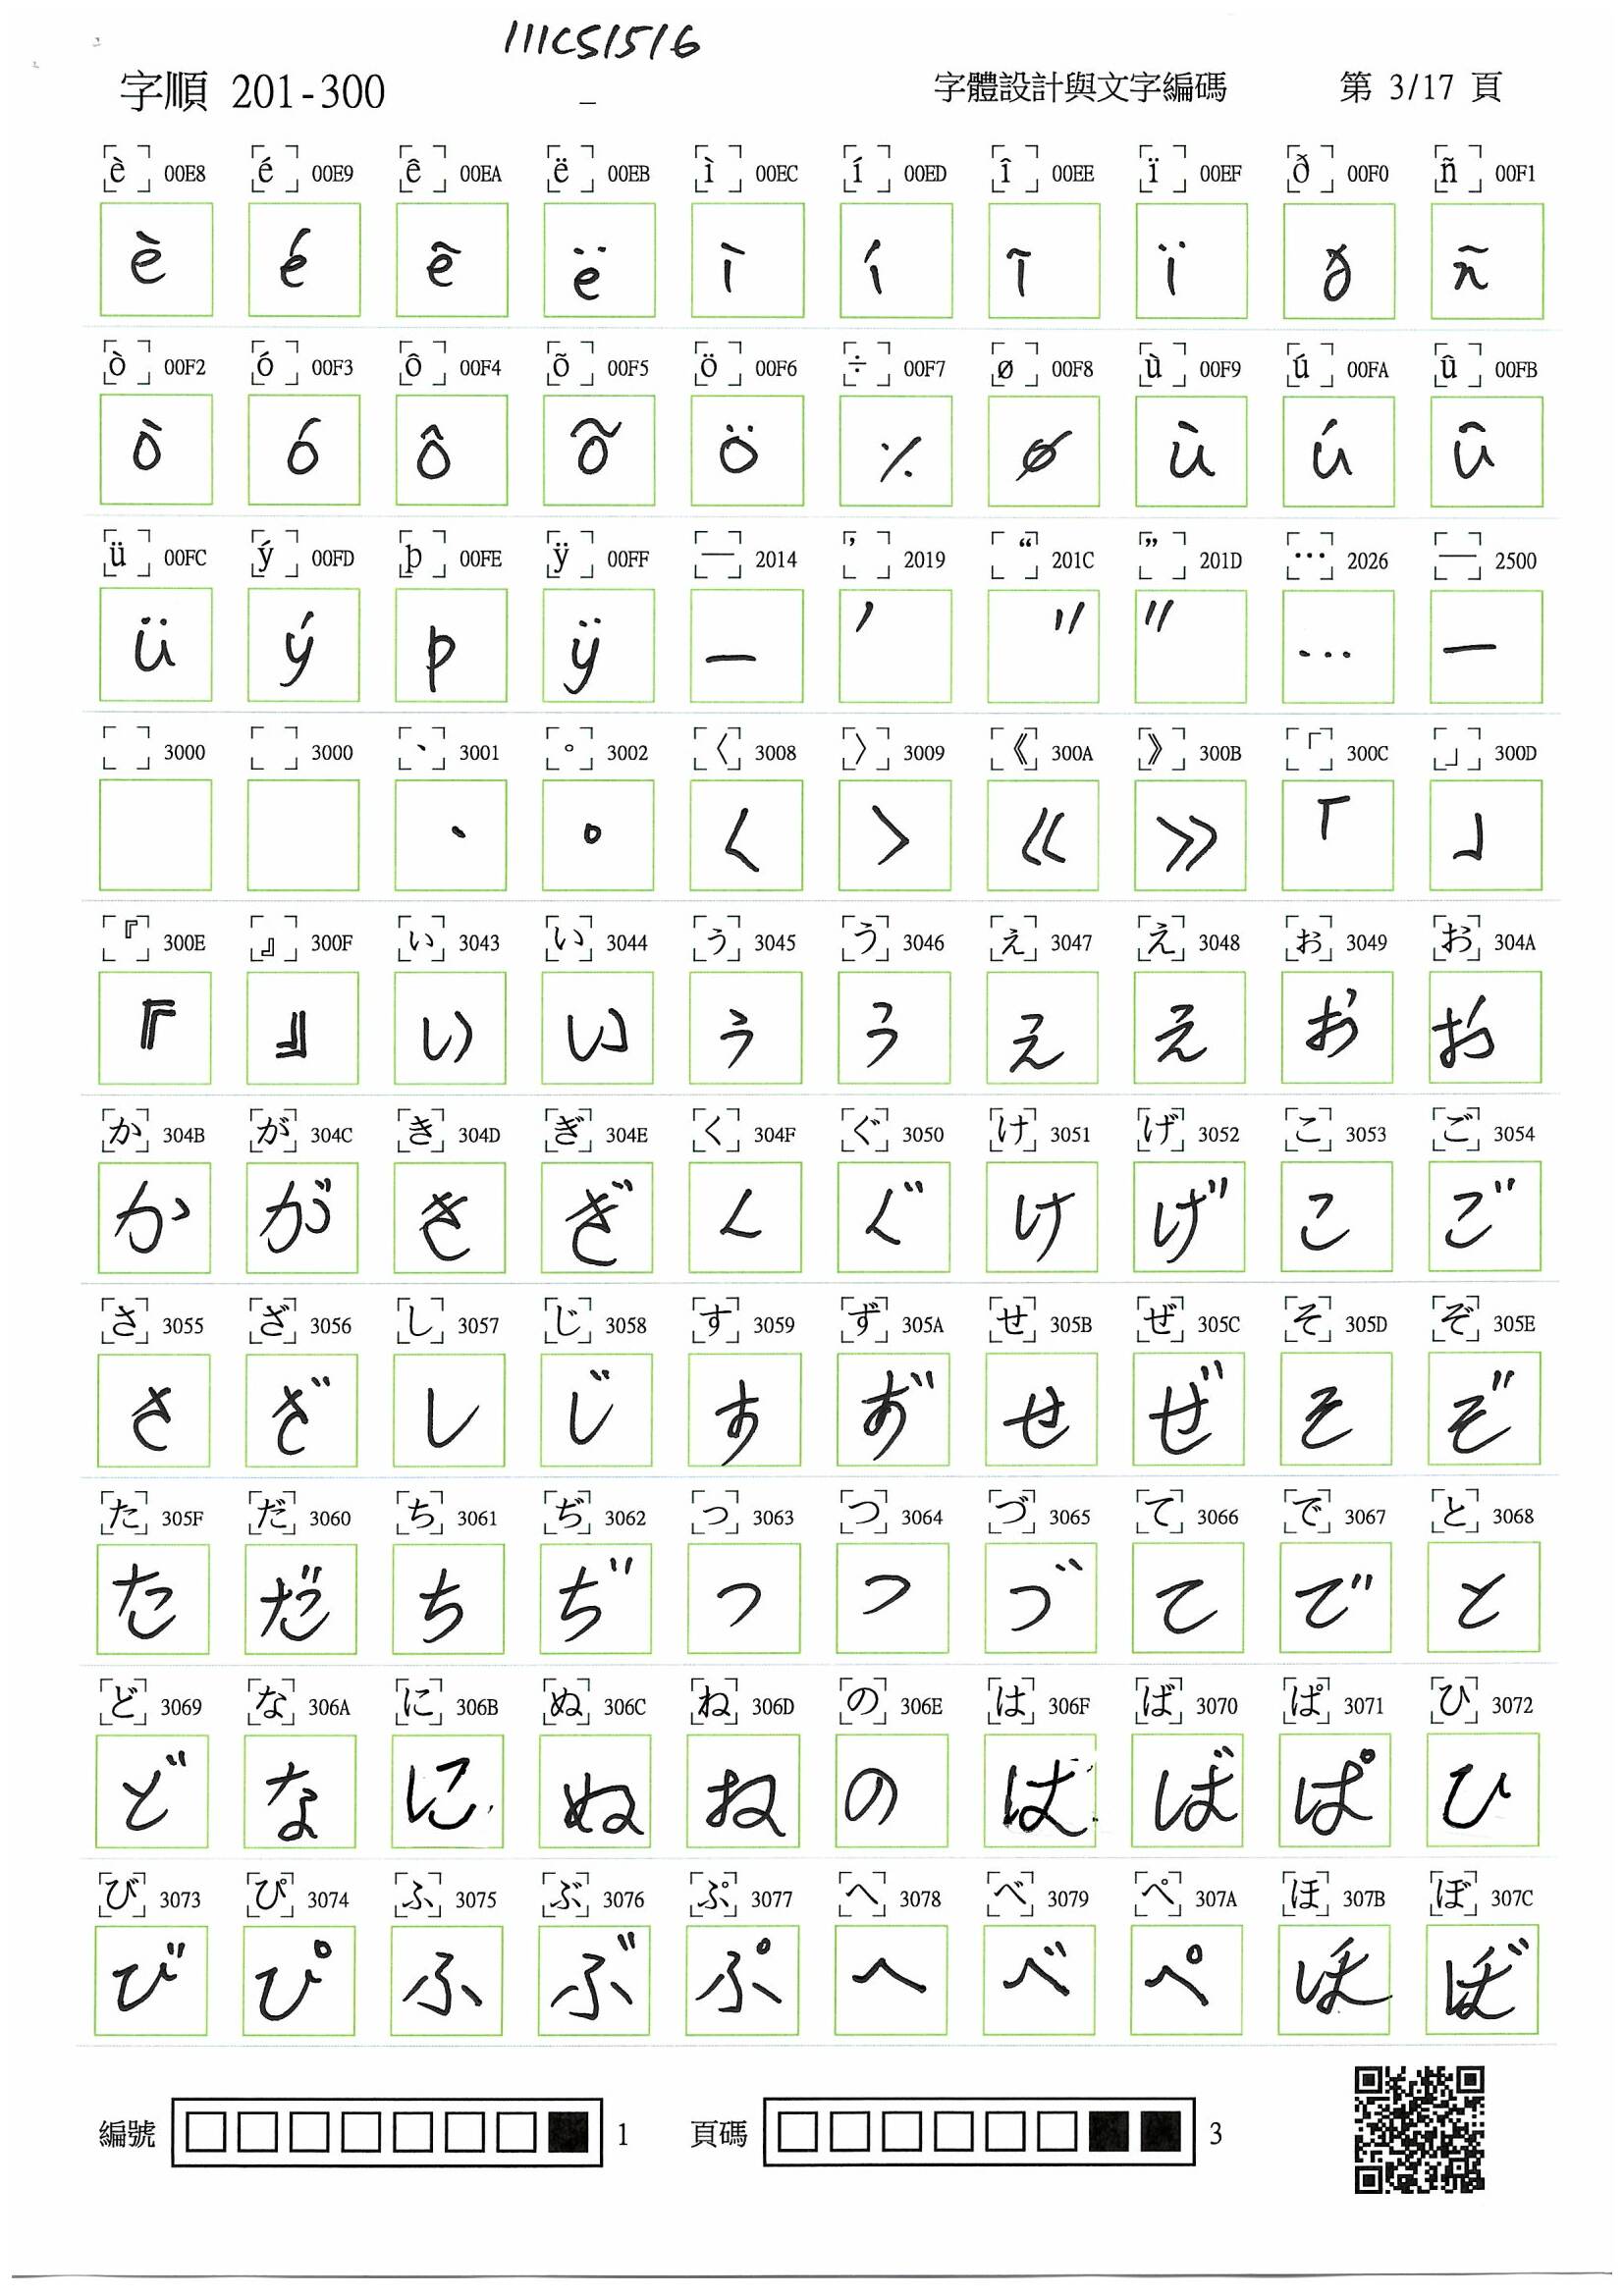 111CS1516
字順 201-300 字體設計與文字編碼 第 3/17 頁
è 00E8 é 00E9 ê 00EA ë 00EB ì 00EC í 00ED î 00EE ï 00EF ð 00F0 ñ 00F1
è é ê ë ì í î ï ð ñ
ò 00F2 ó 00F3 ô 00F4 õ 00F5 ö 00F6 ÷ 00F7 ø 00F8 ù 00F9 ú 00FA û 00FB
ò ó ô õ ö ÷ ø ù ú û
ü 00FC ý 00FD þ 00FE ÿ 00FF — 2014 ’ 2019 “ 201C ” 201D … 2026 ─ 2500
ü ý þ ÿ — ’ “ ” … ─
3000 3000 、 3001 。 3002 〈 3008 〉 3009 《 300A 》 300B 「 300C 」 300D
、 。 〈 〉 《 》 「 」
『 300E 』 300F ぃ 3043 い 3044 ぅ 3045 う 3046 ぇ 3047 え 3048 ぉ 3049 お 304A
『 』 ぃ い ぅ う ぇ え ぉ お
か 304B が 304C き 304D ぎ 304E く 304F ぐ 3050 け 3051 げ 3052 こ 3053 ご 3054
か が き ぎ く ぐ け げ こ ご
さ 3055 ざ 3056 し 3057 じ 3058 す 3059 ず 305A せ 305B ぜ 305C そ 305D ぞ 305E
さ ざ し じ す ず せ ぜ そ ぞ
た 305F だ 3060 ち 3061 ぢ 3062 っ 3063 つ 3064 づ 3065 て 3066 で 3067 と 3068
た だ ち ぢ っ つ づ て で と
ど 3069 な 306A に 306B ぬ 306C ね 306D の 306E は 306F ば 3070 ぱ 3071 ひ 3072
ど な に ぬ ね の は ば ぱ ひ
び 3073 ぴ 3074 ふ 3075 ぶ 3076 ぷ 3077 へ 3078 べ 3079 ぺ 307A ほ 307B ぼ 307C
び ぴ ふ ぶ ぷ へ べ ぺ ほ ぼ
編號 1 頁碼 3